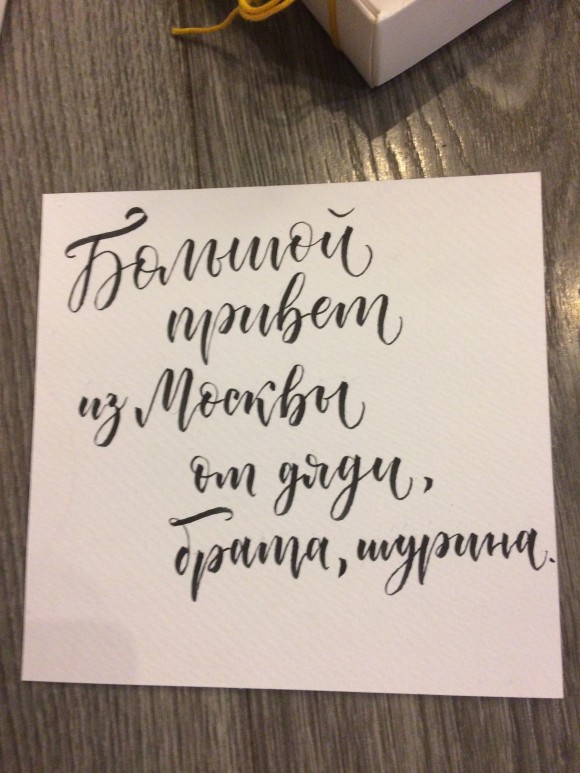 Большой
привет
из Москвы
от дяди,
брата, шурина.